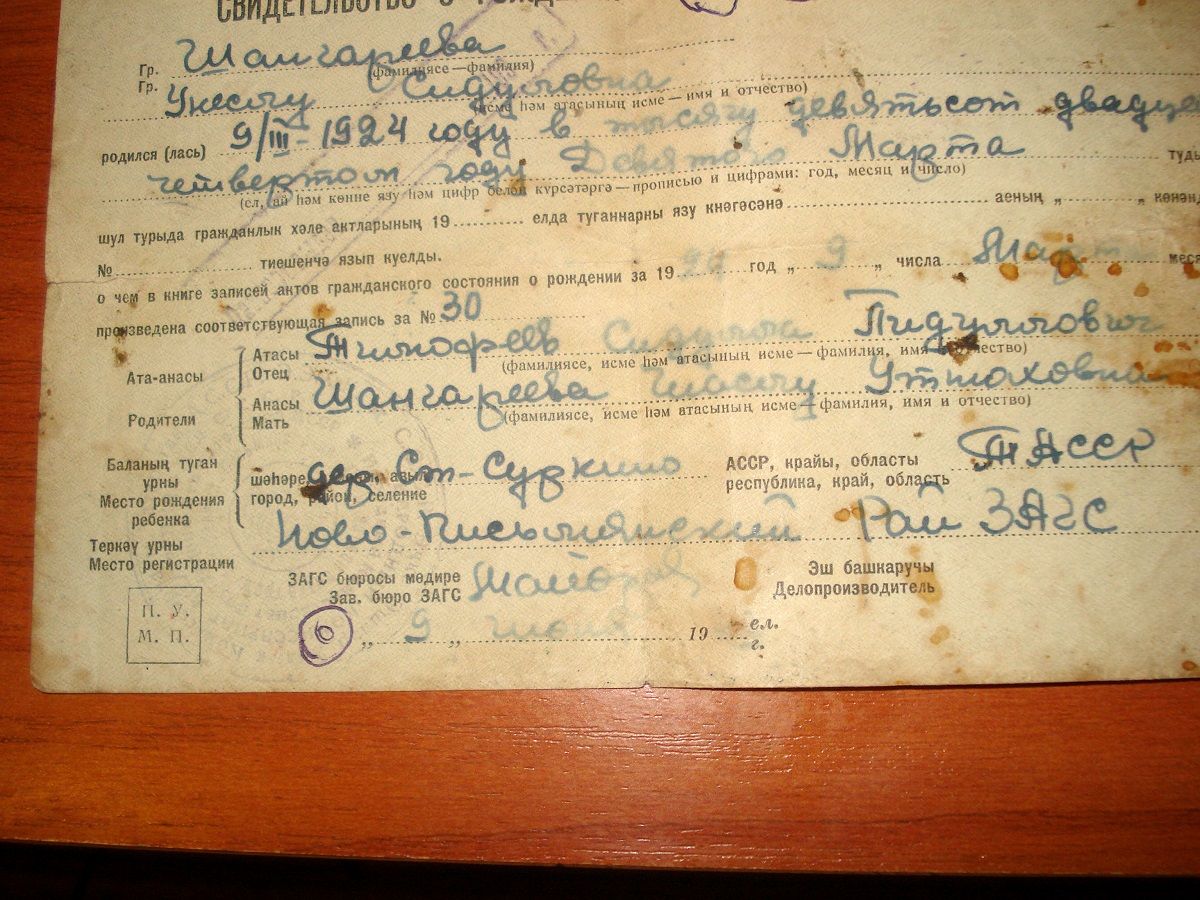 СВИДЕТЕЛЬСТВО О
Гр. Шангареева
(фамилиясе—фамилия)
Гр. Сидулловна
(исме һәм атасының исме—имя и отчество)
родился (лась) 9/III-1924 году в тысячу девятьсот двадца
четвертом году Девятого Марта туды
(ел, ай һәм көнне язу һәм цифр белән күрсәтергә—прописью и цифрами: год, месяц и число)
шул турыда гражданлык хәле актларының 19 елда туганнарны язу кнәгәсәнә аеның „ „ көнәнд
№ тиешенчә язып куелды.
о чем в книге записей актов гражданского состояния о рождении за 19 год „ 9 „ числа Март меся
произведена соответствующая запись за № 30
Ата-анасы
Родители
Атасы Тимофеев
Отец
(фамилиясе, исме һәм атасының исме—фамилия, имя и отчество)
Анасы Шангареева
Мать
(фамилиясе, исме һәм атасының исме—фамилия, имя и отчество)
Баланың туган урны
Место рождения ребенка
шәһәре, дер. Ст-Суркино
город, район, селение
АССР, крайы, области ТАССР
республика, край, область
Теркәү урны Ново-Письмянский Рай ЗАГС
Место регистрации
ЗАГС бюросы мөдире
Зав. бюро ЗАГС
Эш башкаручы
Делопроизводитель
П. У.
М. П.
6 „ 9 „ 19 ел.
г.